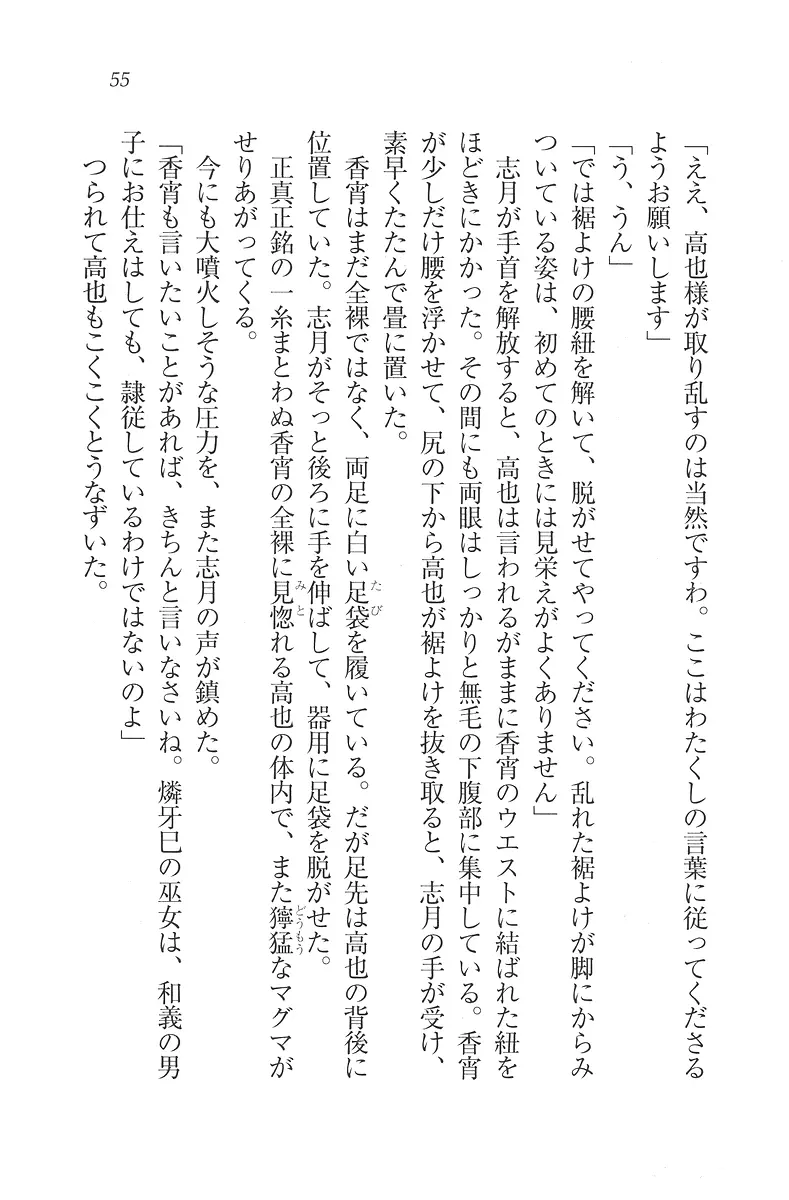 55
「ええ、高也様が取り乱すのは当然ですわ。ここはわたくしの言葉に従ってくださる
ようお願いします」
「う、うん」
「では裾よけの腰紐を解いて、脱がせてやってください。乱れた裾よけが脚にからみ
ついている姿は、初めてのときには見栄えがよくありません」
志月が手首を解放すると、高也は言われるがままに香宵のウエストに結ばれた紐を
ほどきにかかった。その間にも両眼はしっかりと無毛の下腹部に集中している。香宵
が少しだけ腰を浮かせて、尻の下から高也が裾よけを抜き取ると、志月の手が受け、
素早くたたんで畳に置いた。
香宵はまだ全裸ではなく、両足に白い足袋たびを履いている。だが足先は高也の背後に
位置していた。志月がそっと後ろに手を伸ばして、器用に足袋を脱がせた。
正真正銘の一糸まとわぬ香宵の全裸に見惚みとれる高也の体内で、また獰猛どうもうなマグマが
せりあがってくる。
今にも大噴火しそうな圧力を、また志月の声が鎮めた。
「香宵も言いたいことがあれば、きちんと言いなさいね。燐牙巳の巫女は、和義の男
子にお仕えはしても、隷従しているわけではないのよ」
つられて高也もこくこくとうなずいた。